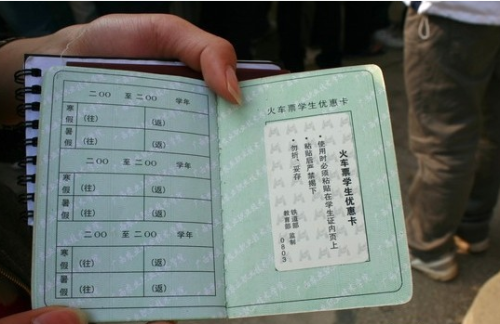 二00 至二00 学年
寒假
(往)
(返)
暑假
(往)
(返)
二00 至二00 学年
寒假
(往)
(返)
暑假
(往)
(返)
二00 至二00 学年
寒假
(往)
(返)
暑假
(往)
(返)
火车票学生优惠卡
火车票学生优惠卡
• 使用时必须粘贴在学生证内页上
• 粘贴后严禁揭下
• 勿折、妥存
铁道部
教育部
监制
0803